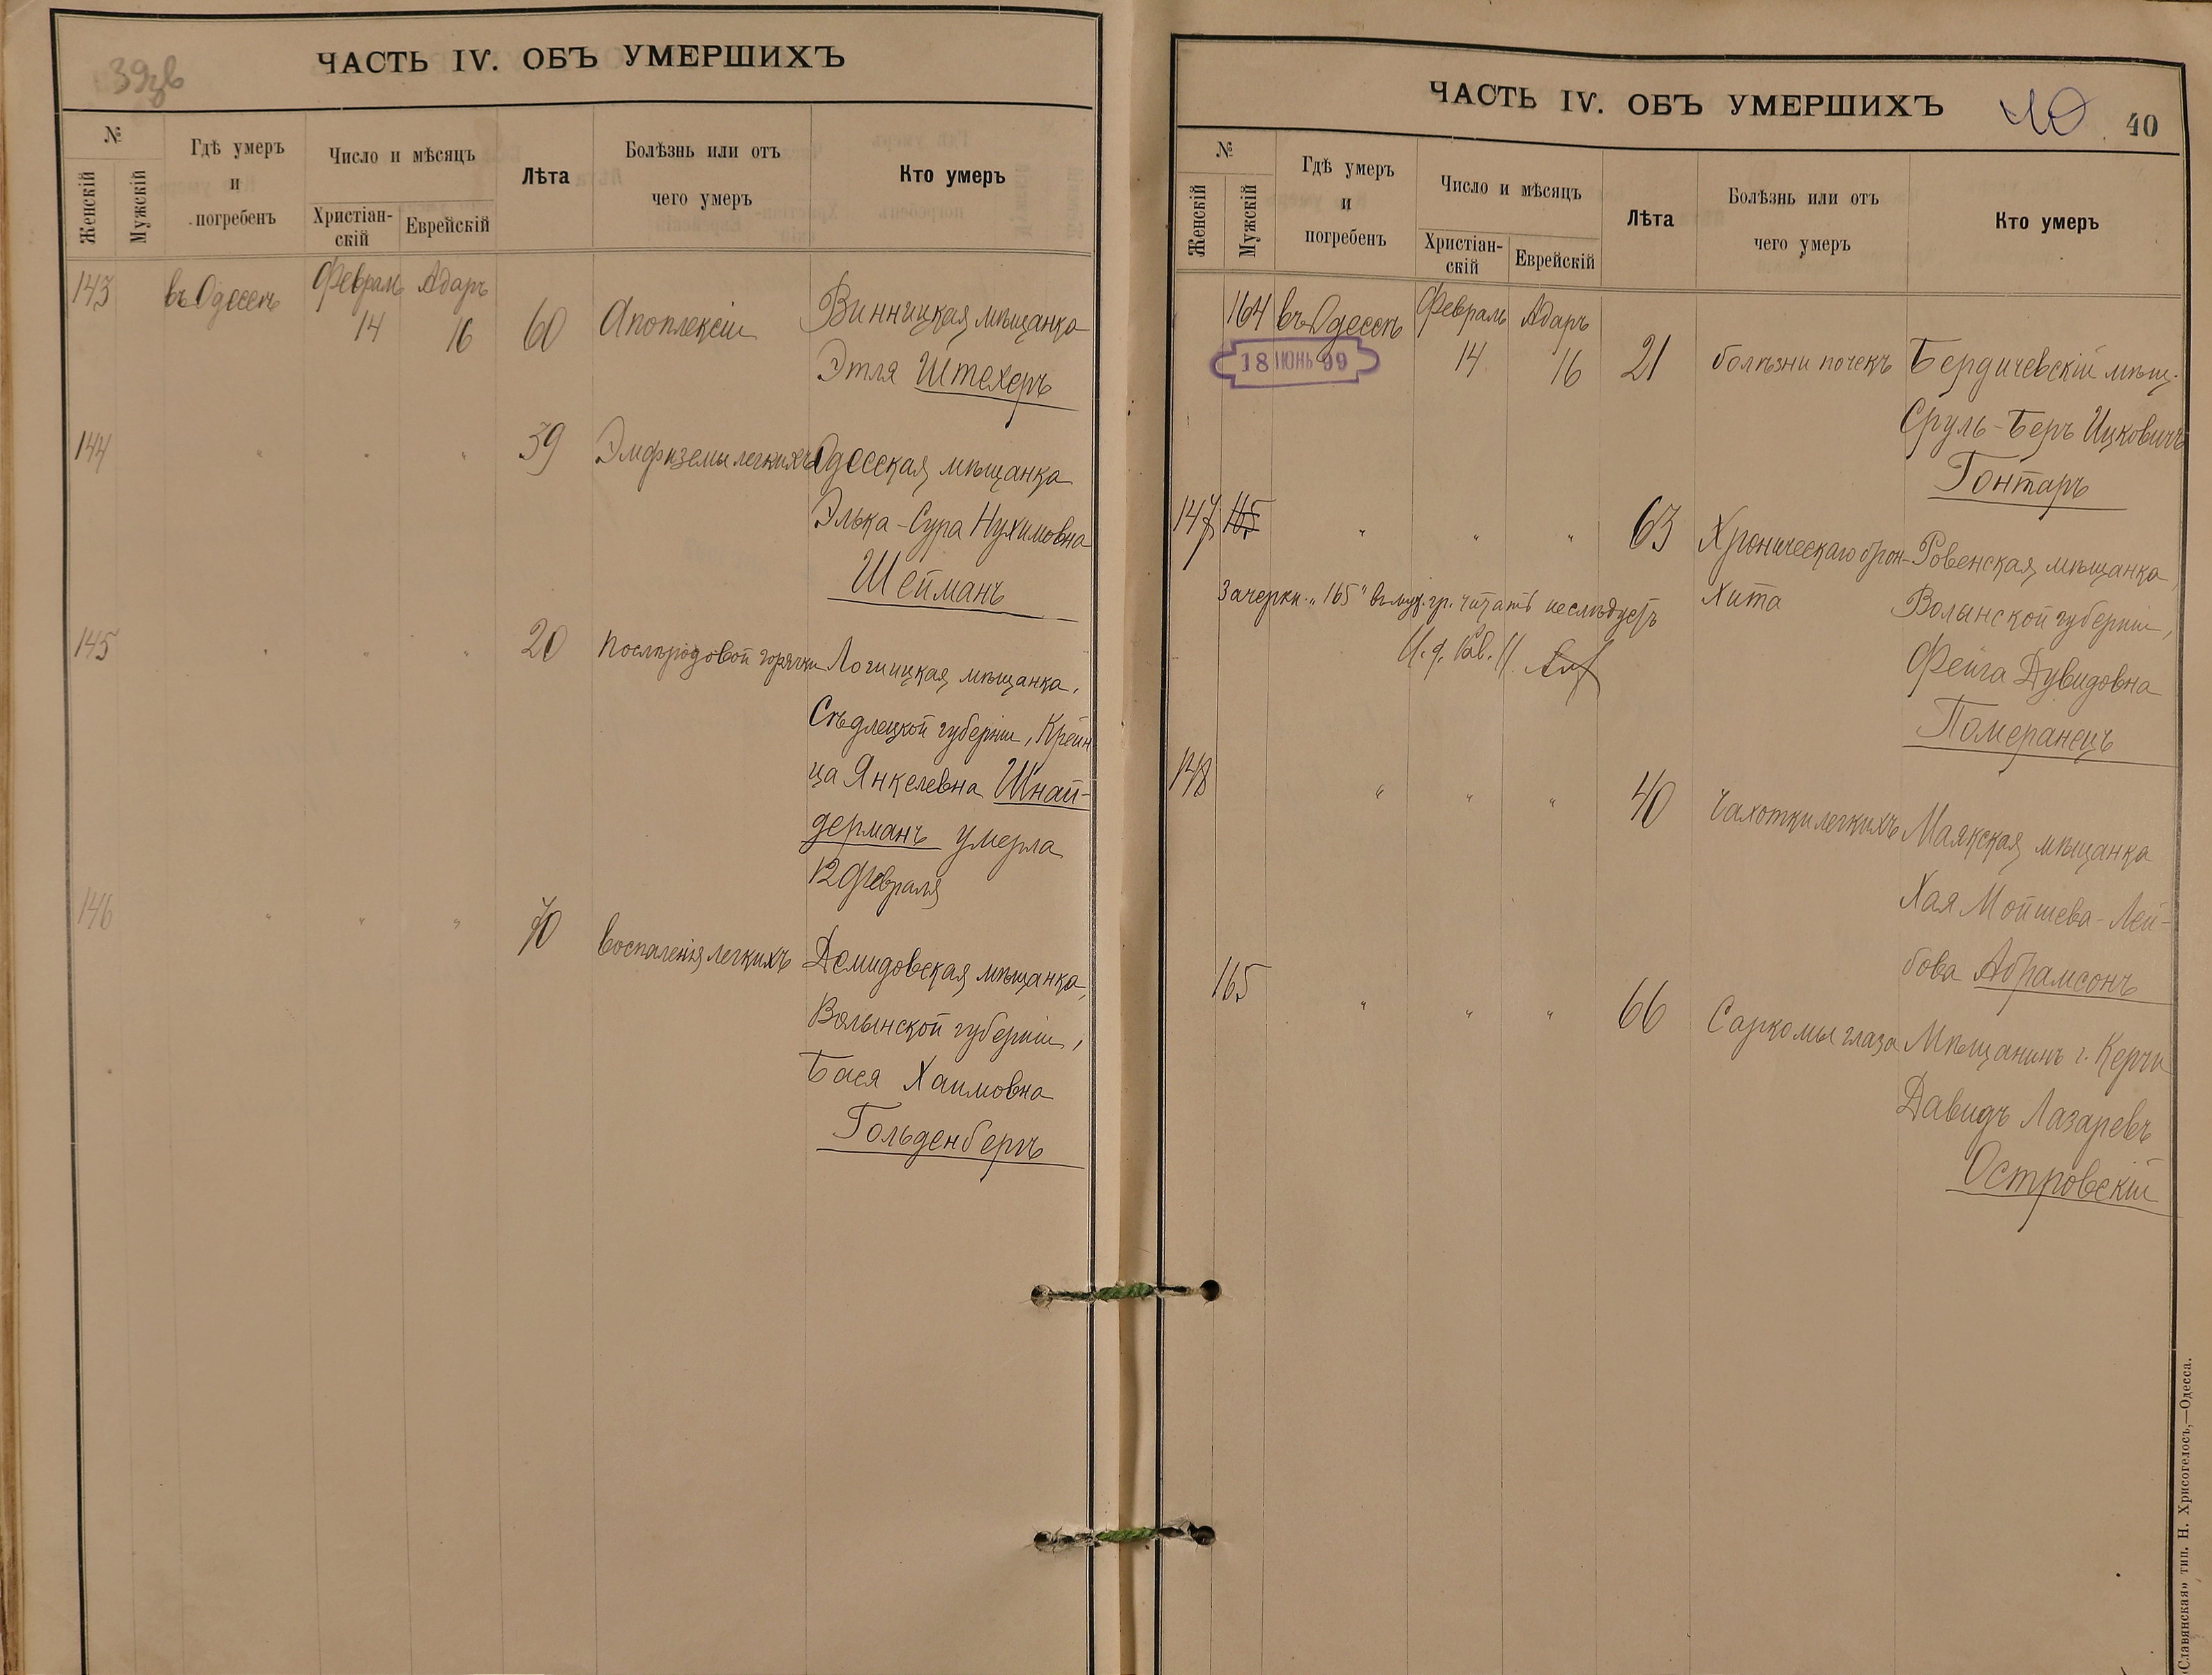 39зв
ЧАСТЬ IV. ОБЪ УМЕРШИХЪ
№
Женскій
Мужскій
Гдѣ умеръ
и
погребенъ
Число и мѣсяцъ
Христіан-
скій
Еврейскій
Лѣта
Болѣзнь или отъ
чего умеръ
Кто умеръ
143 въ Одессѣ Февраль Адаръ
14 16 60 Апоплексіи Винницкая мѣщанка
Этля Штехеръ
144 " " " 39 Эмфиземы легкихъ Одесская мѣщанка
Элька-Сура Нухимовна
Шейманъ
145 " " " 20 Послѣродовой горячки Логицкая мѣщанка,
Сѣдлецкой губерніи, Крейн-
ца Янкелевна Шнай-
дерманъ умерла
12 Февраля
146 " " " 70 Воспаленія легкихъ Демидовская мѣщанка,
Волынской губерніи,
Бася Хаимовна
Гольденбергъ
ЧАСТЬ IV. ОБЪ УМЕРШИХЪ
40 40
№
Женскій
Мужскій
Гдѣ умеръ
и
погребенъ
Число и мѣсяцъ
Христіан-
скій
Еврейскій
Лѣта
Болѣзнь или отъ
чего умеръ
Кто умеръ
164 въ Одессѣ Февраль Адаръ
18 ІЮНЬ 99
14 16 21 болѣзни почекъ Бердичевскій мѣщ.
Сруль-Беръ Ицковичъ
Гонтаръ
147 165 " " " 63 Хроническаго брон- Ровенская мѣщанка,
хита Волынской губерніи,
Зачеркн. "165" въ муж. гр. читать не слѣдуетъ
И. д. Рав.
Фейга Дувидовна
Померанецъ
148 " " " 40 Чахотки легкихъ Маякская мѣщанка
Хая Мойшева-Лей-
бова Абрамсонъ
165 " " " 66 Саркомы глаза Мѣщанинъ г. Керчи
Давидъ Лазаревъ
Островскій
«Славянская» тип. Н. Хрисогелосъ,—Одесса.